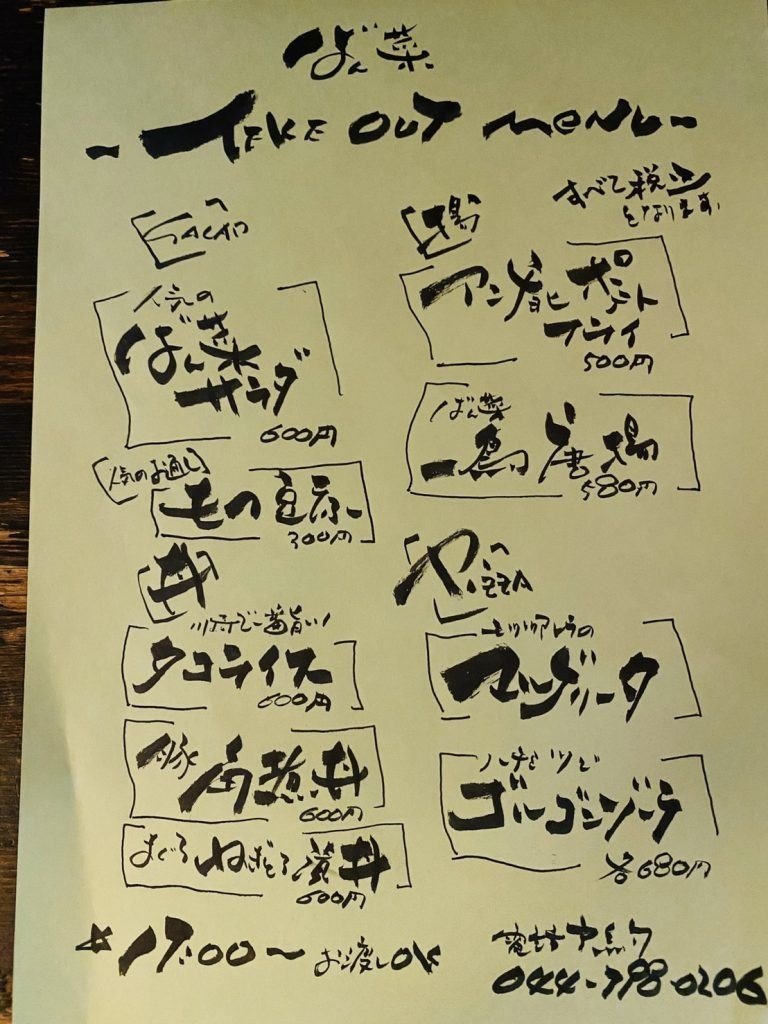 ばん菜
- TAKE OUT MENU -
すべて税込
となります。
SALAD
人気の
ばん菜
サラダ
600円
人気のお通し
モツ豆腐
300円
丼
川崎で一番旨い!
タコライス
600円
豚角煮丼
600円
まぐろねぎとろ漬丼
600円
揚
アンチョビポテト
フライ
500円
ばん菜
鳥唐揚
580円
PIZZA
モッツァレラの
マルゲリータ
ハチミツで
ゴルゴンゾーラ
各680円
17:00〜お渡しOK
044-798-0206